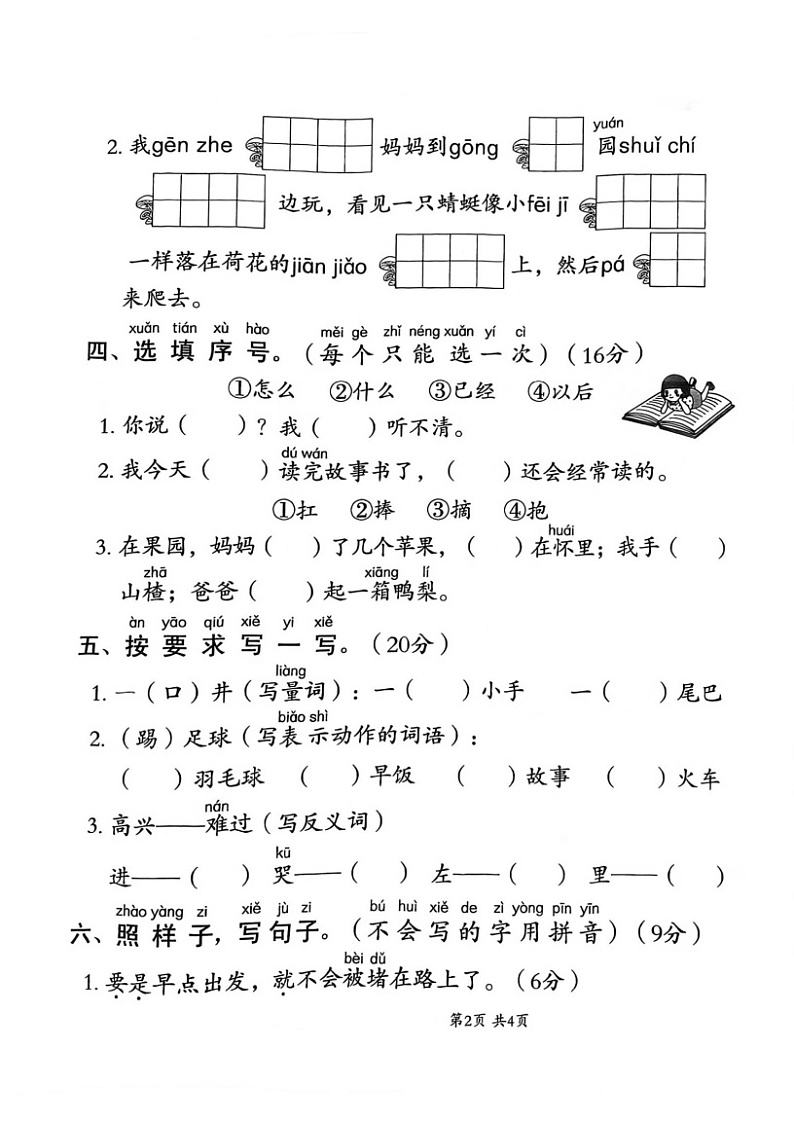 yuán
2. 我gēn zhe 妈妈到gōng 园shuǐ chí
边玩，看见一只蜻蜓像小fēi jī
一样落在荷花的jiān jiǎo 上，然后pá
来爬去。
xuǎn tián xù hào měi gè zhǐ néng xuǎn yí cì
四、选填序号。（每个只能选一次）（16分）
①怎么 ②什么 ③已经 ④以后
1. 你说（ ）？我（ ）听不清。
dú wán
2. 我今天（ ）读完故事书了，（ ）还会经常读的。
①扛 ②捧 ③摘 ④抱
huái
3. 在果园，妈妈（ ）了几个苹果，（ ）在怀里；我手（ ）
zhā xiāng lí
山楂；爸爸（ ）起一箱鸭梨。
àn yāo qiú xiě yi xiě
五、按要求写一写。（20分）
liàng
1. 一（口）井（写量词）：一（ ）小手 一（ ）尾巴
biǎo shì
2. （踢）足球（写表示动作的词语）：
（ ）羽毛球 （ ）早饭 （ ）故事 （ ）火车
nán
3. 高兴——难过（写反义词）
kū
进——（ ） 哭——（ ） 左——（ ） 里——（ ）
zhào yàng zi xiě jù zi bú huì xiě de zì yòng pīn yīn
六、照样子，写句子。（不会写的字用拼音）（9分）
bèi dǔ
1. 要是早点出发，就不会被堵在路上了。（6分）
第2页 共4页